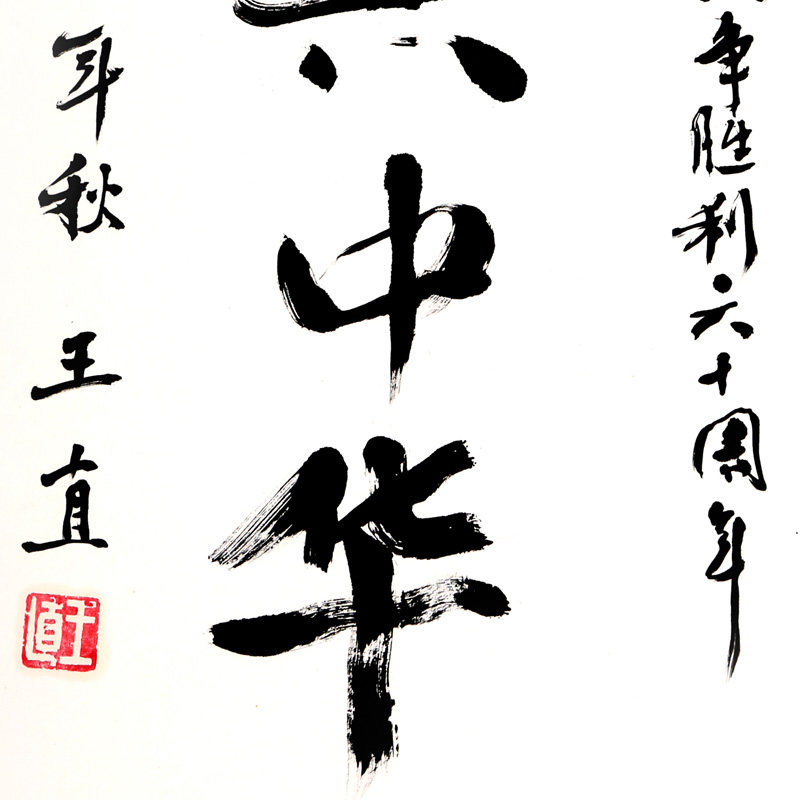 争胜利六十周年
中华
年秋 王直
王直